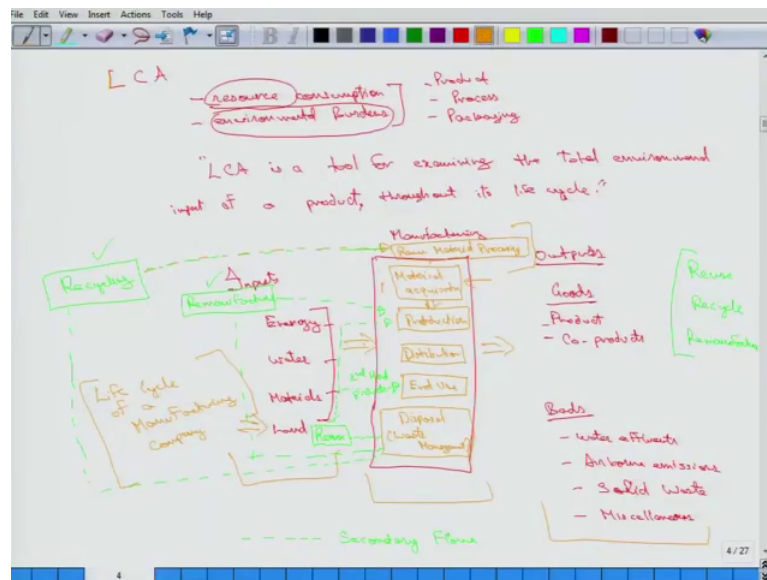 File Edit View Insert Actions Tools Help
LCA
- resource consumption
- environmental burdens
- Product
- Process
- Packaging
"LCA is a tool for examining the total environmental
impact of a product, throughout its life cycle."
Manufacturing
Raw Material Processing
Recycling
Inputs
Remanufacture
Energy
Water
Materials
Land
Reuse
2nd Hand
Life Cycle
of a
Manufacturing
Company
Material
acquisition
Production
Distribution
End Use
Disposal
(Waste
Management)
Outputs
Goods
- Product
- Co-products
Bads
- Water effluents
- Airborne emissions
- Solid Waste
- Miscellaneous
Reuse
Recycle
Remanufacture
Secondary Flows
4/27
4